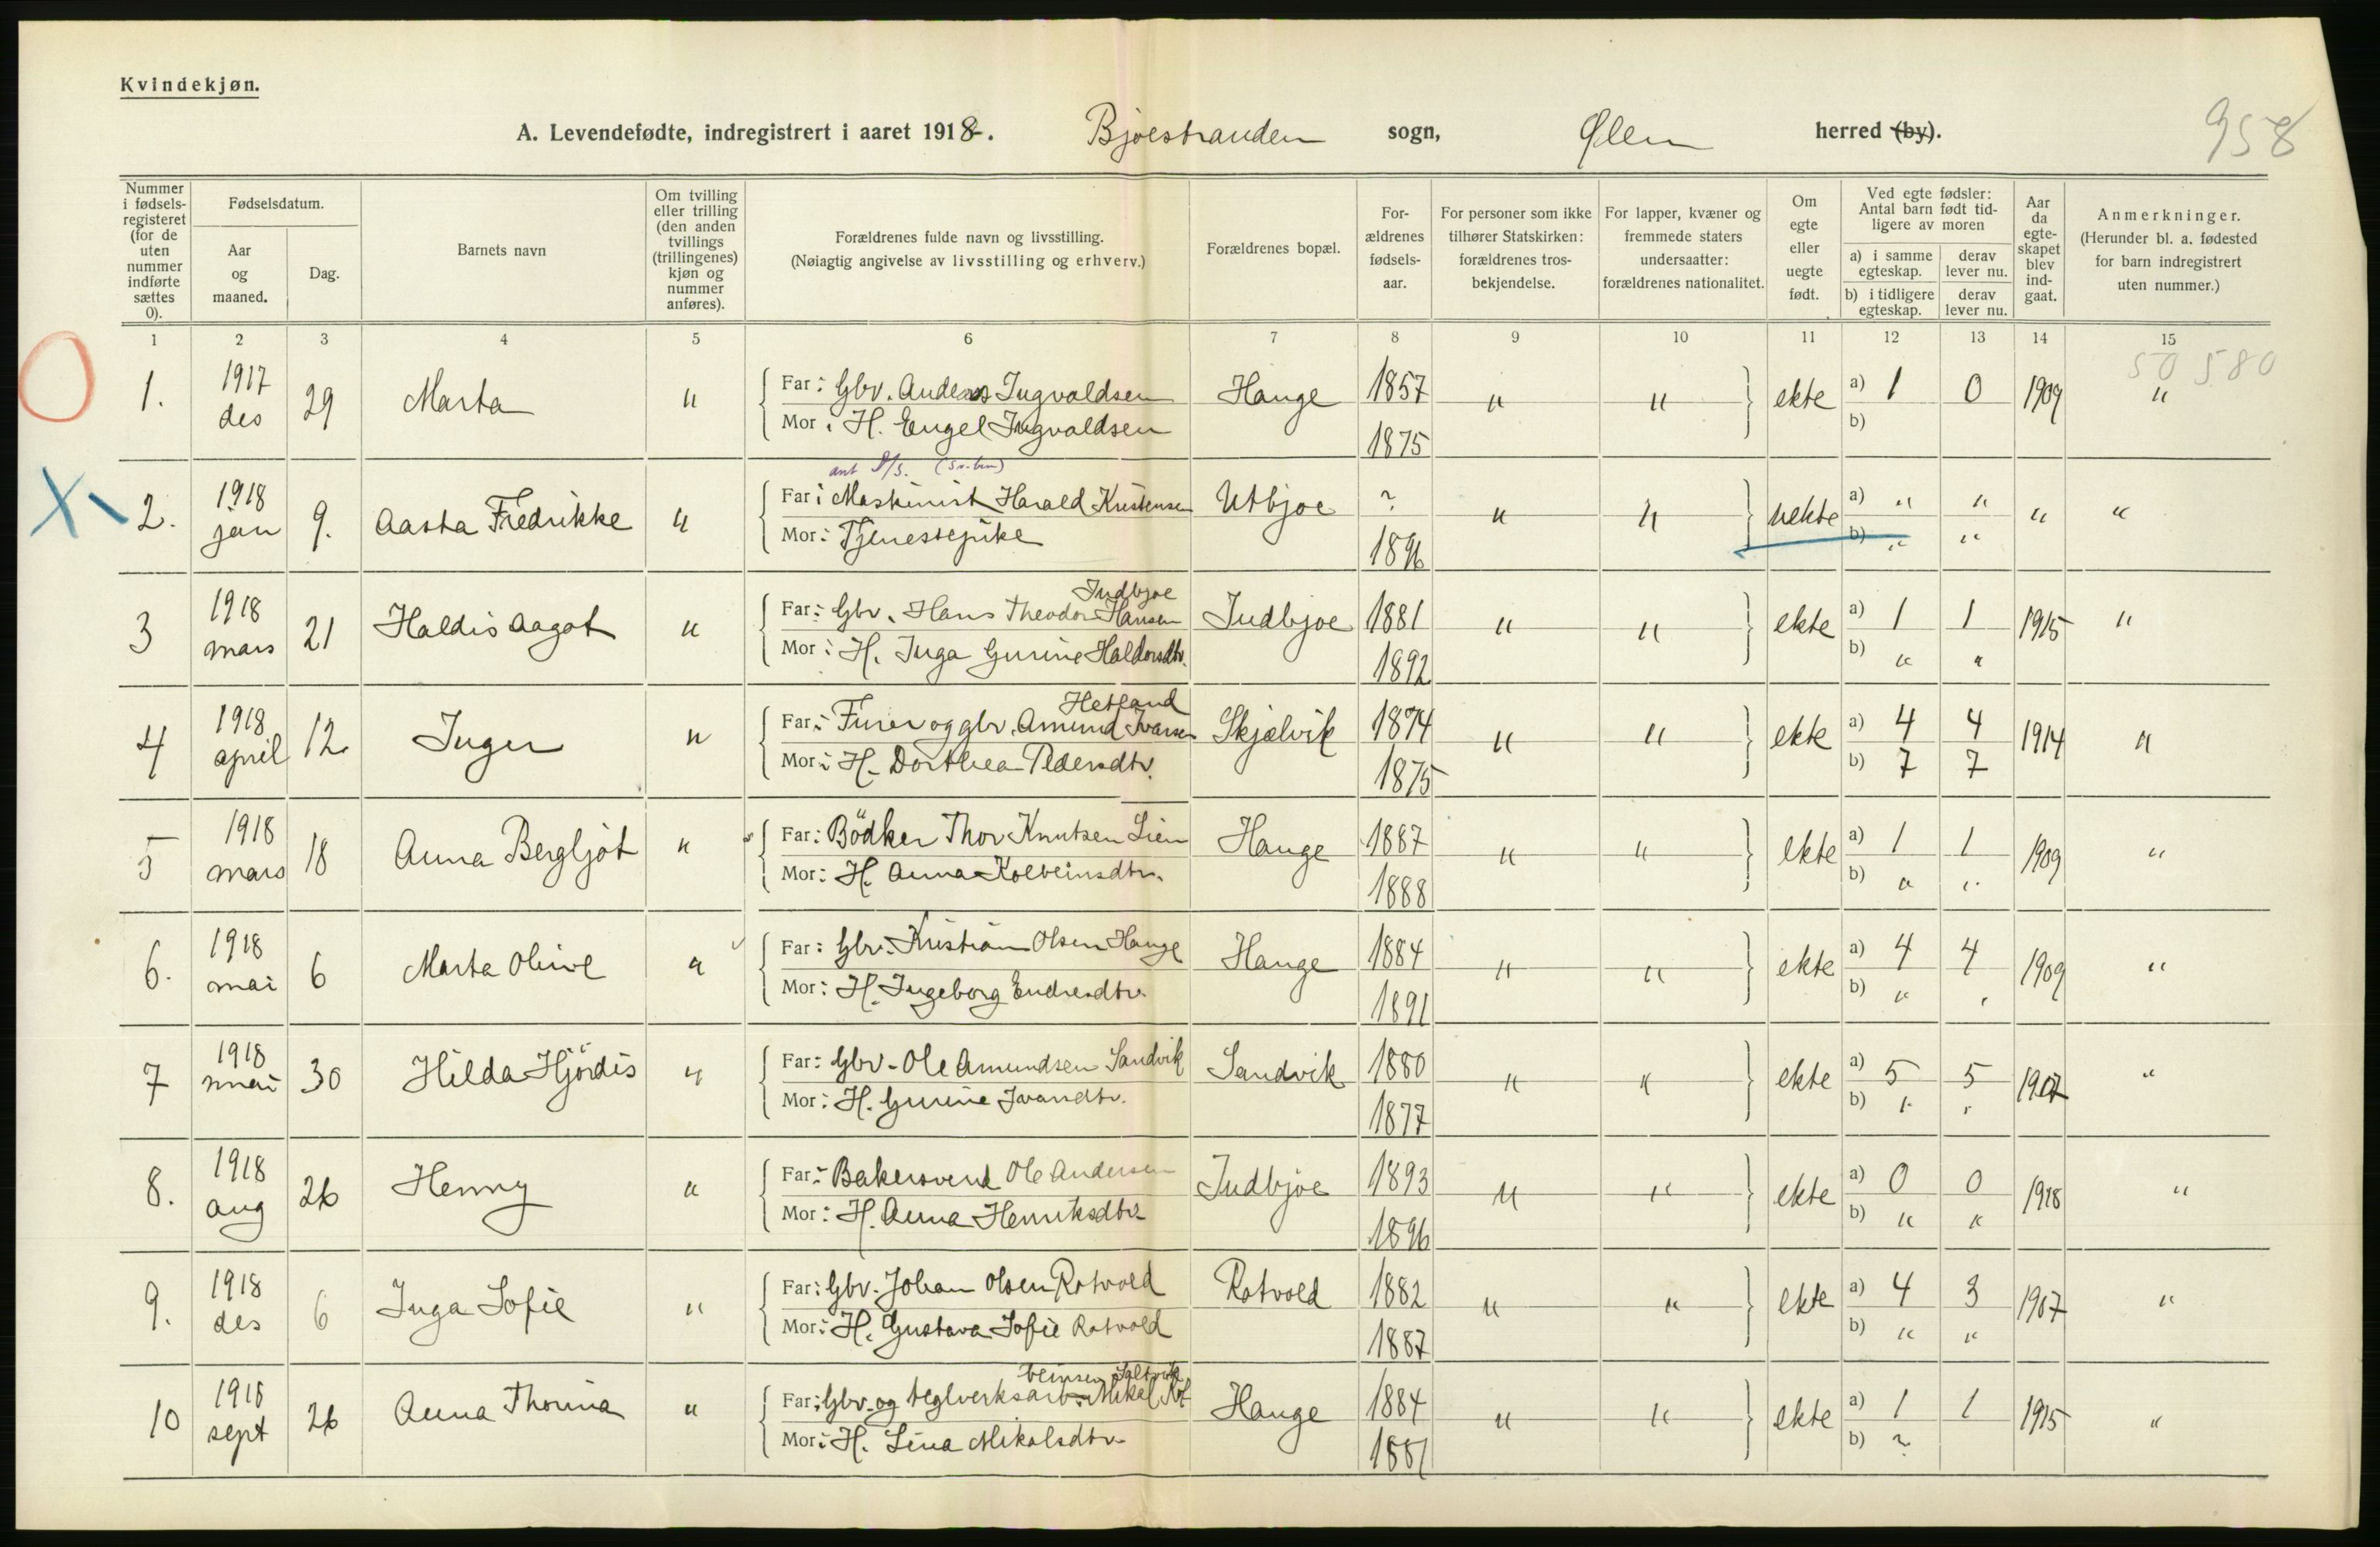 Kvindekjøn.
A. Levendefødte, indregistrert i aaret 1918. Bjoestranden sogn, Ølen herred (by).
958
Nummer i fødsels-registeret (for de uten nummer indførte sættes 0).
Fødselsdatum.
Aar og maaned.
Dag.
Barnets navn
Om tvilling eller trilling (den anden tvillings (trillingenes) kjøn og nummer anføres).
Forældrenes fulde navn og livsstilling.
(Nøiagtig angivelse av livsstilling og erhverv.)
Forældrenes bopæl.
For-ældrenes fødsels-aar.
For personer som ikke tilhører Statskirken: forældrenes tros-bekjendelse.
For lapper, kvæner og fremmede staters undersaatter: forældrenes nationalitet.
Om egte eller uegte født.
Ved egte fødsler: Antal barn født tid-ligere av moren
a) i samme egteskap.
derav lever nu.
b) i tidligere egteskap.
derav lever nu.
Aar da egte-skapet blev ind-gaat.
Anmerkninger.
(Herunder bl. a. fødested for barn indregistrert uten nummer.)
1 2 3 4 5 6 7 8 9 10 11 12 13 14 15
50 580
1. 1917 des 29 Marta " Far: Gbv. Anders Ingvaldsen Hauge 1857 " " ekte a) 1 0 1909 "
Mor: H. Engel Ingvaldsen 1875 b)
2. 1918 jan 9. Aasta Fredrikke " Far: Maskinist Harald Kristensen Utbjoe ? " " uekte a) " " " "
Mor: Tjenestepike 1896 b) " "
Indbjoe
3 1918 mars 21 Haldis Aagot " Far: Gbv. Hans Theodor Hansen Indbjoe 1881 " " ekte a) 1 1 1915 "
Mor: H. Inga Gurine Haldorsdtr. 1892 b) " "
Hetland
4 1918 april 12 Inger " Far: Furer og gbv. Amund Ivarsen Skjælvik 1874 " " ekte a) 4 4 1914 "
Mor: H. Dorthea Pedersdtr. 1875 b) 7 7
5 1918 mars 18 Anna Bergljot " Far: Bödker Thor Knutsen Lien Hauge 1887 " " ekte a) 1 1 1909 "
Mor: H. Anna Kolbeinsdtr. 1888 b) " "
6. 1918 mai 6 Marta Olive " Far: Gbv. Kristian Olsen Hauge Hauge 1884 " " ekte a) 4 4 1909 "
Mor: H. Ingeborg Endresdtr. 1891 b) " "
7 1918 mai 30 Hilda Hjördis " Far: Gbv. Ole Amundsen Sandvik Sandvik 1880 " " ekte a) 5 5 1907 "
Mor: H. Gurine Ivarsdtr. 1877 b) " "
8. 1918 aug 26 Henny " Far: Bakersvend Ole Andersen Indbjoe 1893 " " ekte a) 0 0 1918 "
Mor: H. Anna Henriksdtr. 1896 b) " "
9. 1918 des 6 Inga Sofie " Far: Gbv. Johan Olsen Rotvold Rotvold 1882 " " ekte a) 4 3 1907 "
Mor: H. Gustava Sofie Rotvold 1887 b) " "
beinsen Saltvik
10 1918 sept 26 Anna Thomina " Far: Gbv. og teglverksarb. Mikal Kol Hauge 1884 " " ekte a) 1 1 1915 "
Mor: H. Lina Mikalsdtr. 1881 b) ?